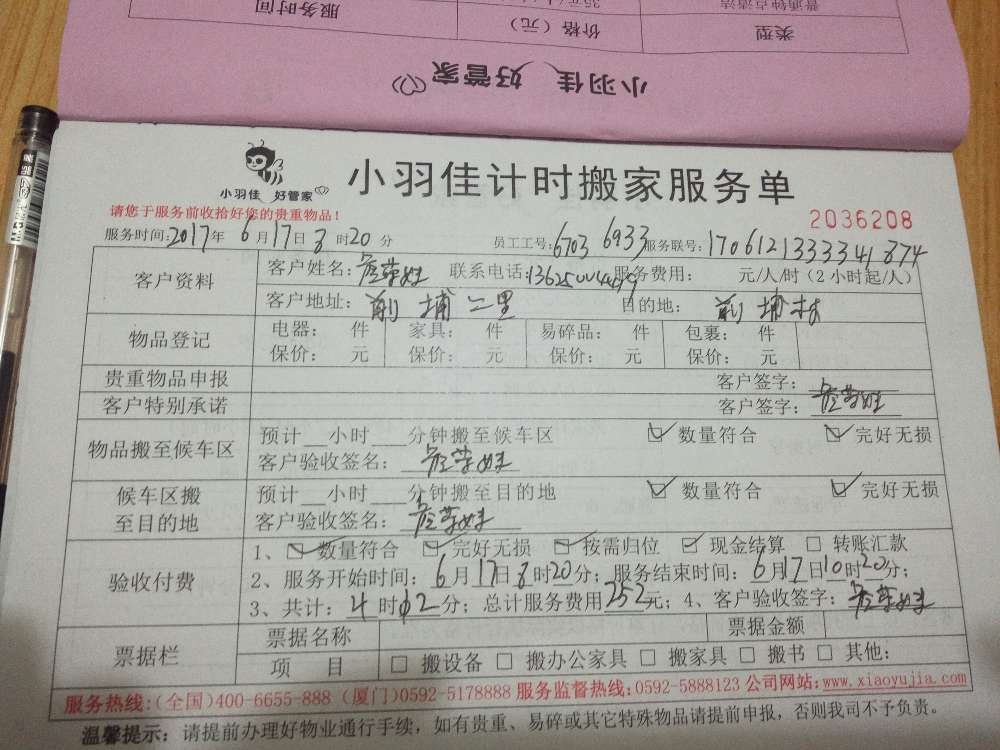 服务时间
普通钟点清洁
类型
价格（元）
小羽佳 好管家
小羽佳 好管家
小羽佳计时搬家服务单
请您于服务前收拾好您的贵重物品！
2036208
服务时间:2017年6月17日8时20分 员工工号:6703 6933 服务联号:1706121333341874
客户资料 客户姓名: 联系电话: 服务费用: 元/人/时（2小时起/人）
客户地址: 前埔二里 目的地: 前埔村
物品登记 电器: 件 家具: 件 易碎品: 件 包裹: 件
保价: 元 保价: 元 保价: 元 保价: 元
贵重物品申报 客户签字:
客户特别承诺 客户签字:
物品搬至候车区 预计__小时___分钟搬至候车区 ☑ 数量符合 ☑ 完好无损
客户验收签名:
候车区搬至目的地 预计__小时___分钟搬至目的地 ☑ 数量符合 ☑ 完好无损
客户验收签名:
验收付费 1、☑ 数量符合 ☑ 完好无损 ☑ 按需归位 ☑ 现金结算 □ 转账汇款
2、服务开始时间: 6月17日8时20分; 服务结束时间: 6月17日10时20分;
3、共计: 4时 分; 总计服务费用252元; 4、客户验收签字:
票据栏 票据名称 票据金额
项 目 □ 搬设备 □ 搬办公家具 □ 搬家具 □ 搬书 □ 其他:
服务热线:(全国)400-6655-888 (厦门)0592-5178888 服务监督热线:0592-5888123 公司网站:www.xiaoyujia.com
温馨提示: 请提前办理好物业通行手续，如有贵重、易碎或其它特殊物品请提前申报，否则我司不予负责。